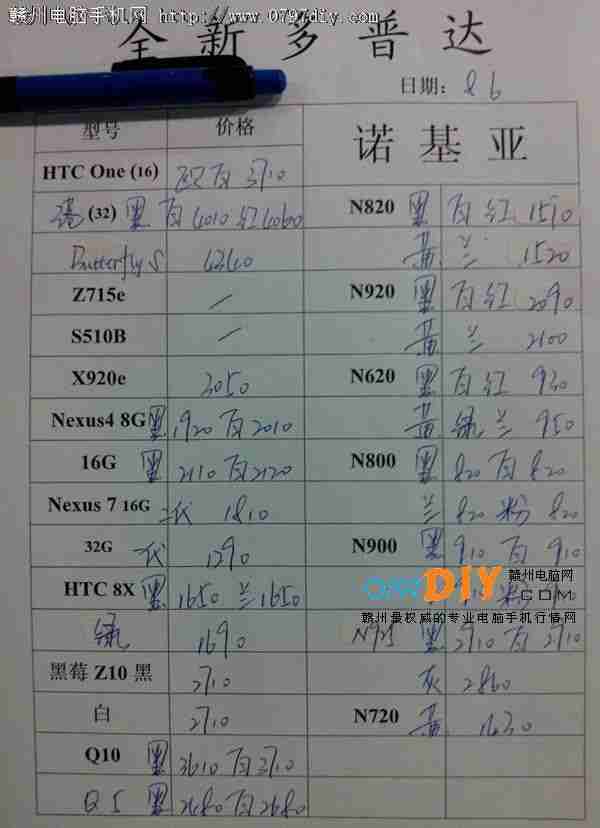 赣州电脑手机网 http://www.0797diy.com
全新多普达
日期: 8 6
型号 价格 诺基亚
HTC One (16) 白 3710
(32) 黑 白 4010 红 4060 N820 黑 白 红 1510
Butterfly S 4340 黄 兰 1520
Z715e — N920 黑 白 红 2090
S510B — 黄 兰 2100
X920e 3050 N620 黑 白 红 930
Nexus4 8G 黑 1920 白 2010 黄 兰 950
16G 黑 2110 白 2120 N800 黑 820 白 820
Nexus 7 16G 二代 1810 兰 820 粉 820
32G 代 1290 N900 黑 910 白 910
HTC 8X 黑 1650 兰 1650 粉
DIY 赣州电脑网 .COM
赣州最权威的专业电脑手机行情网
1690 N925 黑 2710 白 2710
黑莓 Z10 黑 2710 灰 2860
白 2710 N720 黄 1630
Q10 黑 3610 白 3710
Q5 黑 2680 白 2680